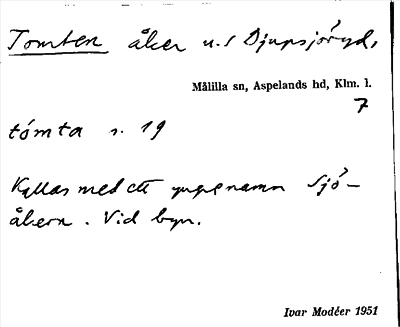 Tomten åker u. s Djupsjöryd,
Målilla sn, Aspelands hd, Klm. l.
7
tómta s. 19
Kallas med ett yngre namn Sjö-
åkern. Vid byn.
Ivar Modéer 1951